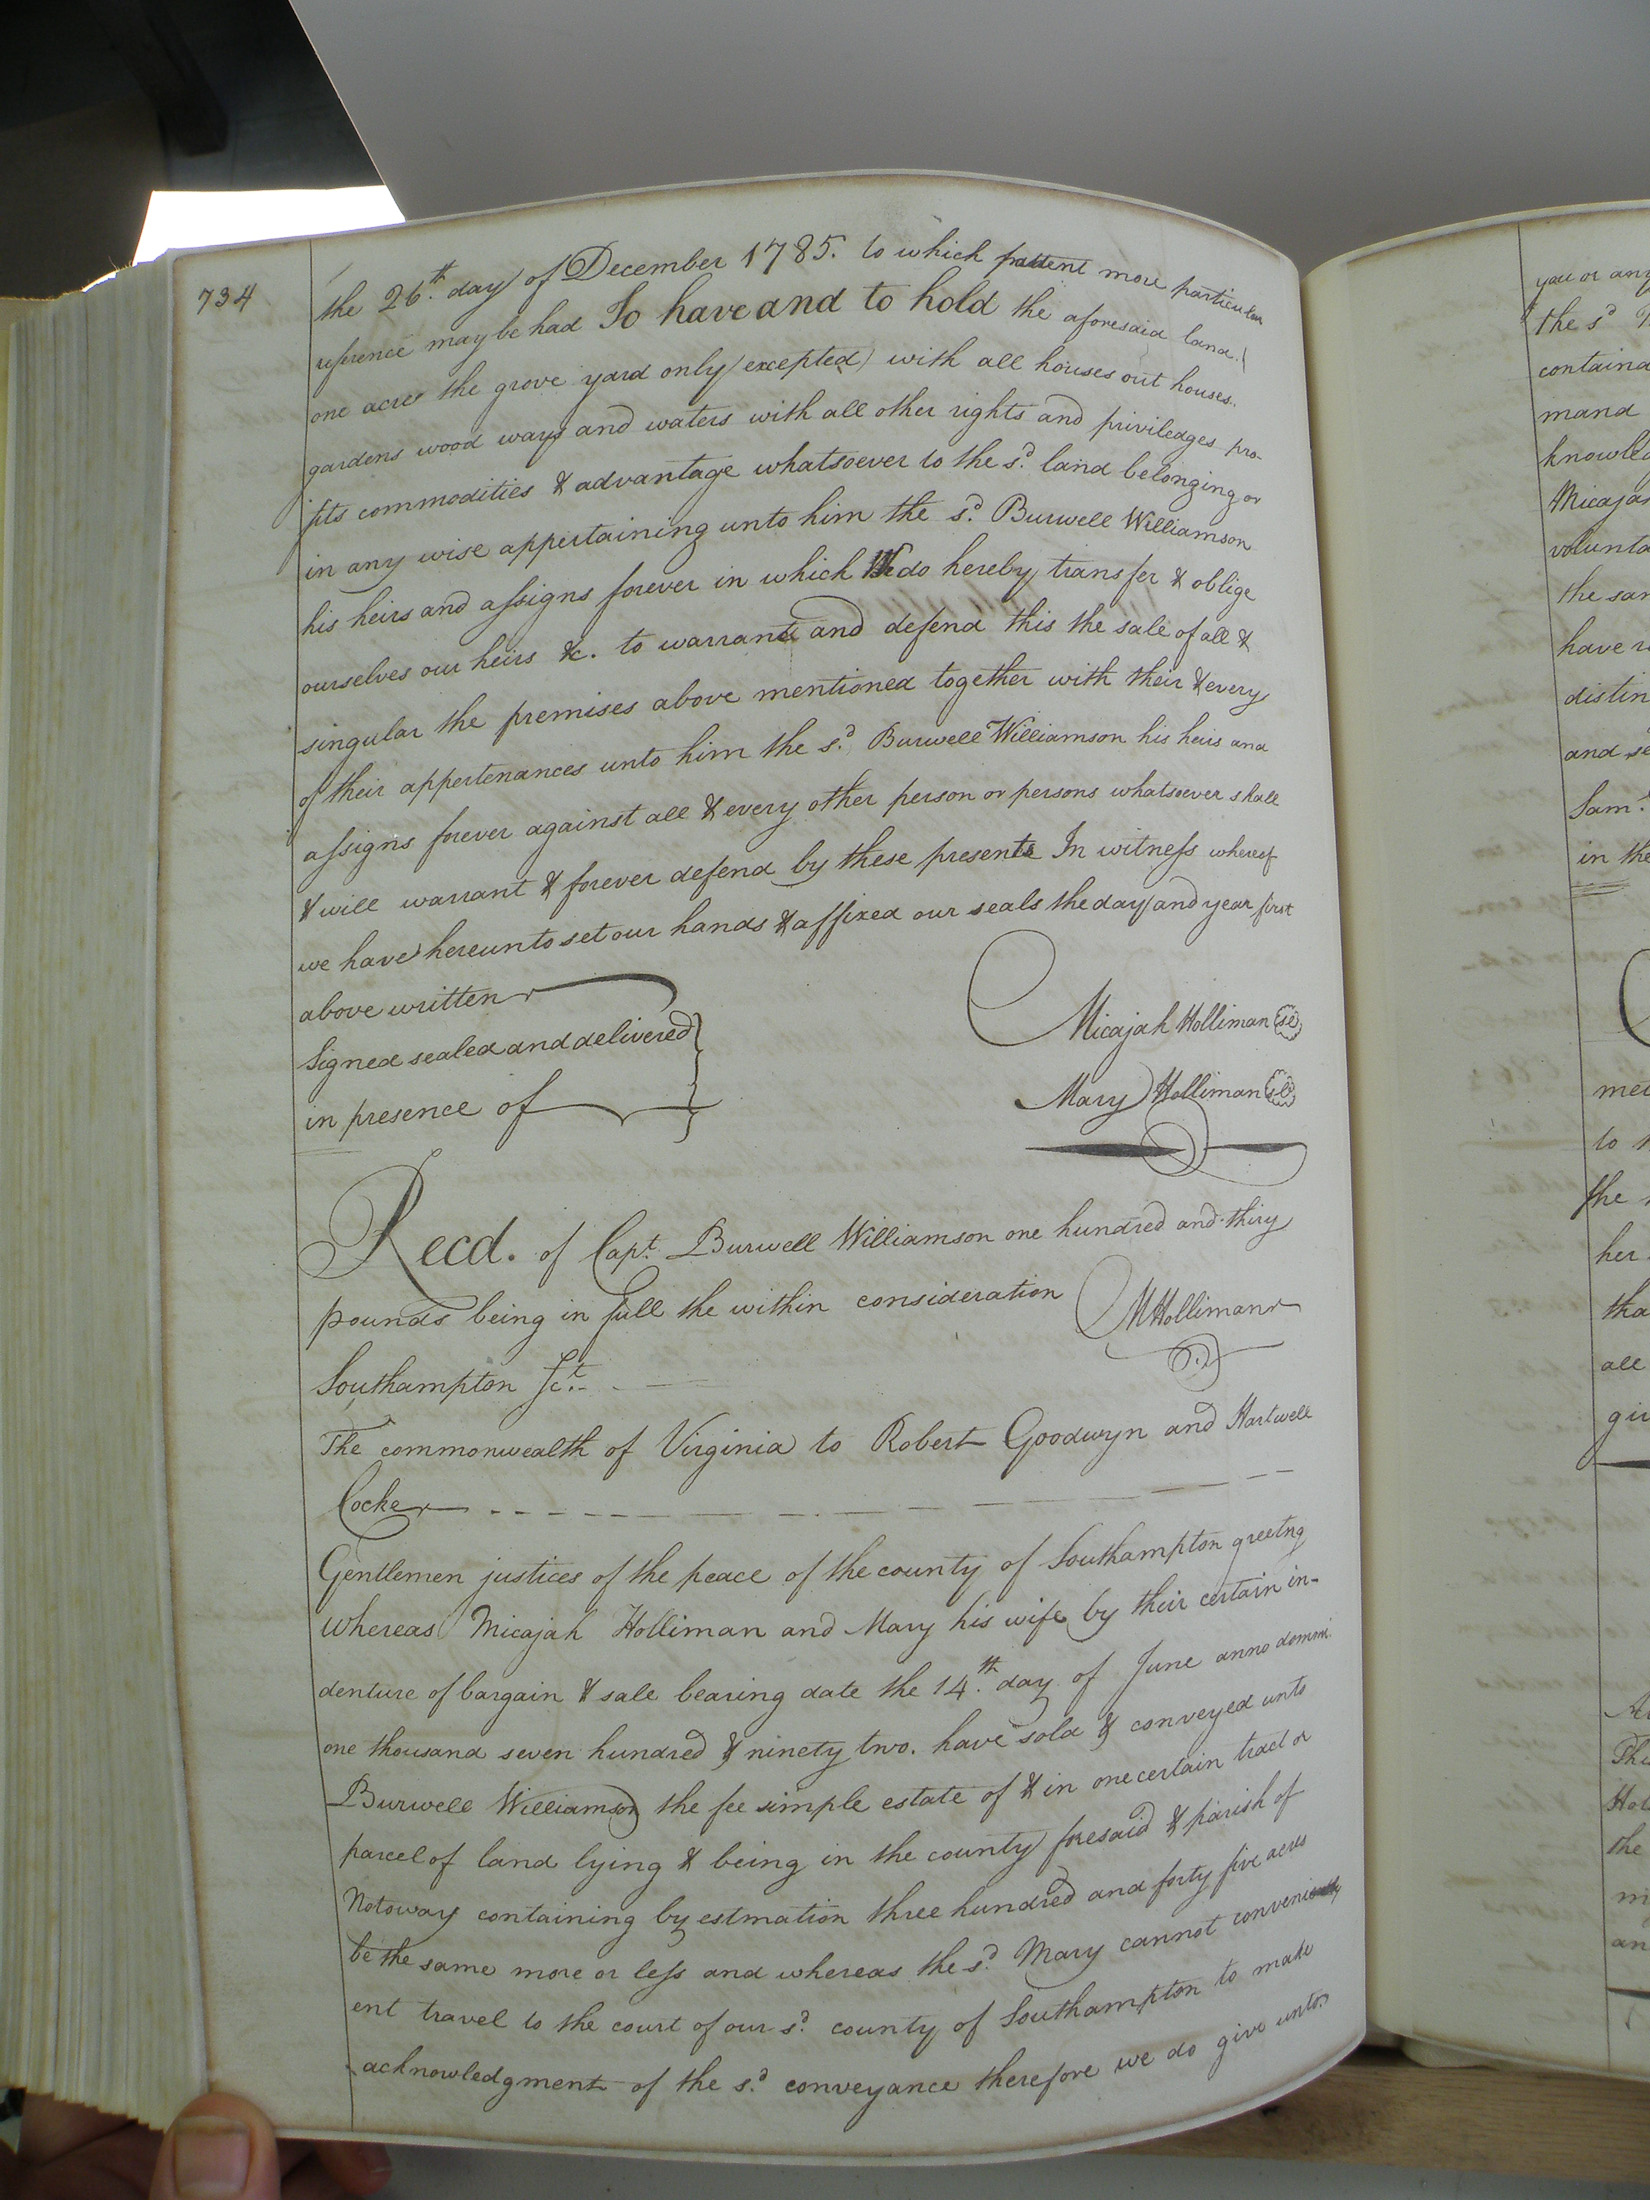 734
the 26th. day of December 1785. to which pattent more particular
reference may be had To have and to hold the aforesaid land (
one acre the grove yard only excepted) with all houses out houses.
gardens wood ways and waters with all other rights and priviledges pro-
fits commodities & advantage whatsoever to the sd. land belonging or
in any wise appertaining unto him the sd. Burwell Williamson
his heirs and assigns forever in which We do hereby transfer & oblige
ourselves our heirs &c. to warrant and defend this the sale of all &
singular the premises above mentioned together with their & every
of their appertenances unto him the sd. Burwell Williamson his heirs and
assigns forever against all & every other person or persons whatsoever shall
& will warrant & forever defend by these presents In witness whereof
we have hereunto set our hands & affixed our seals the day and year first
above written
Signed sealed and delivered }
in presence of
Micajah Holliman se
Mary Holliman sl
Recd. of Capt. Burwell Williamson one hundred and thiry
pounds being in full the within consideration
MHolliman
Southampton Sct.
The commonwealth of Virginia to Robert Goodwyn and Hartwell
Cocke
Gentlemen justices of the peace of the county of Southampton greetng
whereas Micajah Holliman and Mary his wife by their certain in-
denture of bargain & sale bearing date the 14th. day of June anno domini
one thousand seven hundred & ninety two. have sold & conveyed unto
Burwell Williamson the fee simple estate of & in one certain tract or
parcel of land lying & being in the county foresaid & parish of
Notoway containing by estmation three hundred and forty five acres
be the same more or less and whereas the sd. Mary cannot conveni
ent travel to the court of our sd. county of Southampton to make
acknowledgment of the sd. conveyance therefore we do give unto
you or any
the sd
containd
mand
knowled
Micajah
volunta
the sam
have
distin
and se
Sam
in the
to
the
her
tha
all
giv
The
Hol
the
an